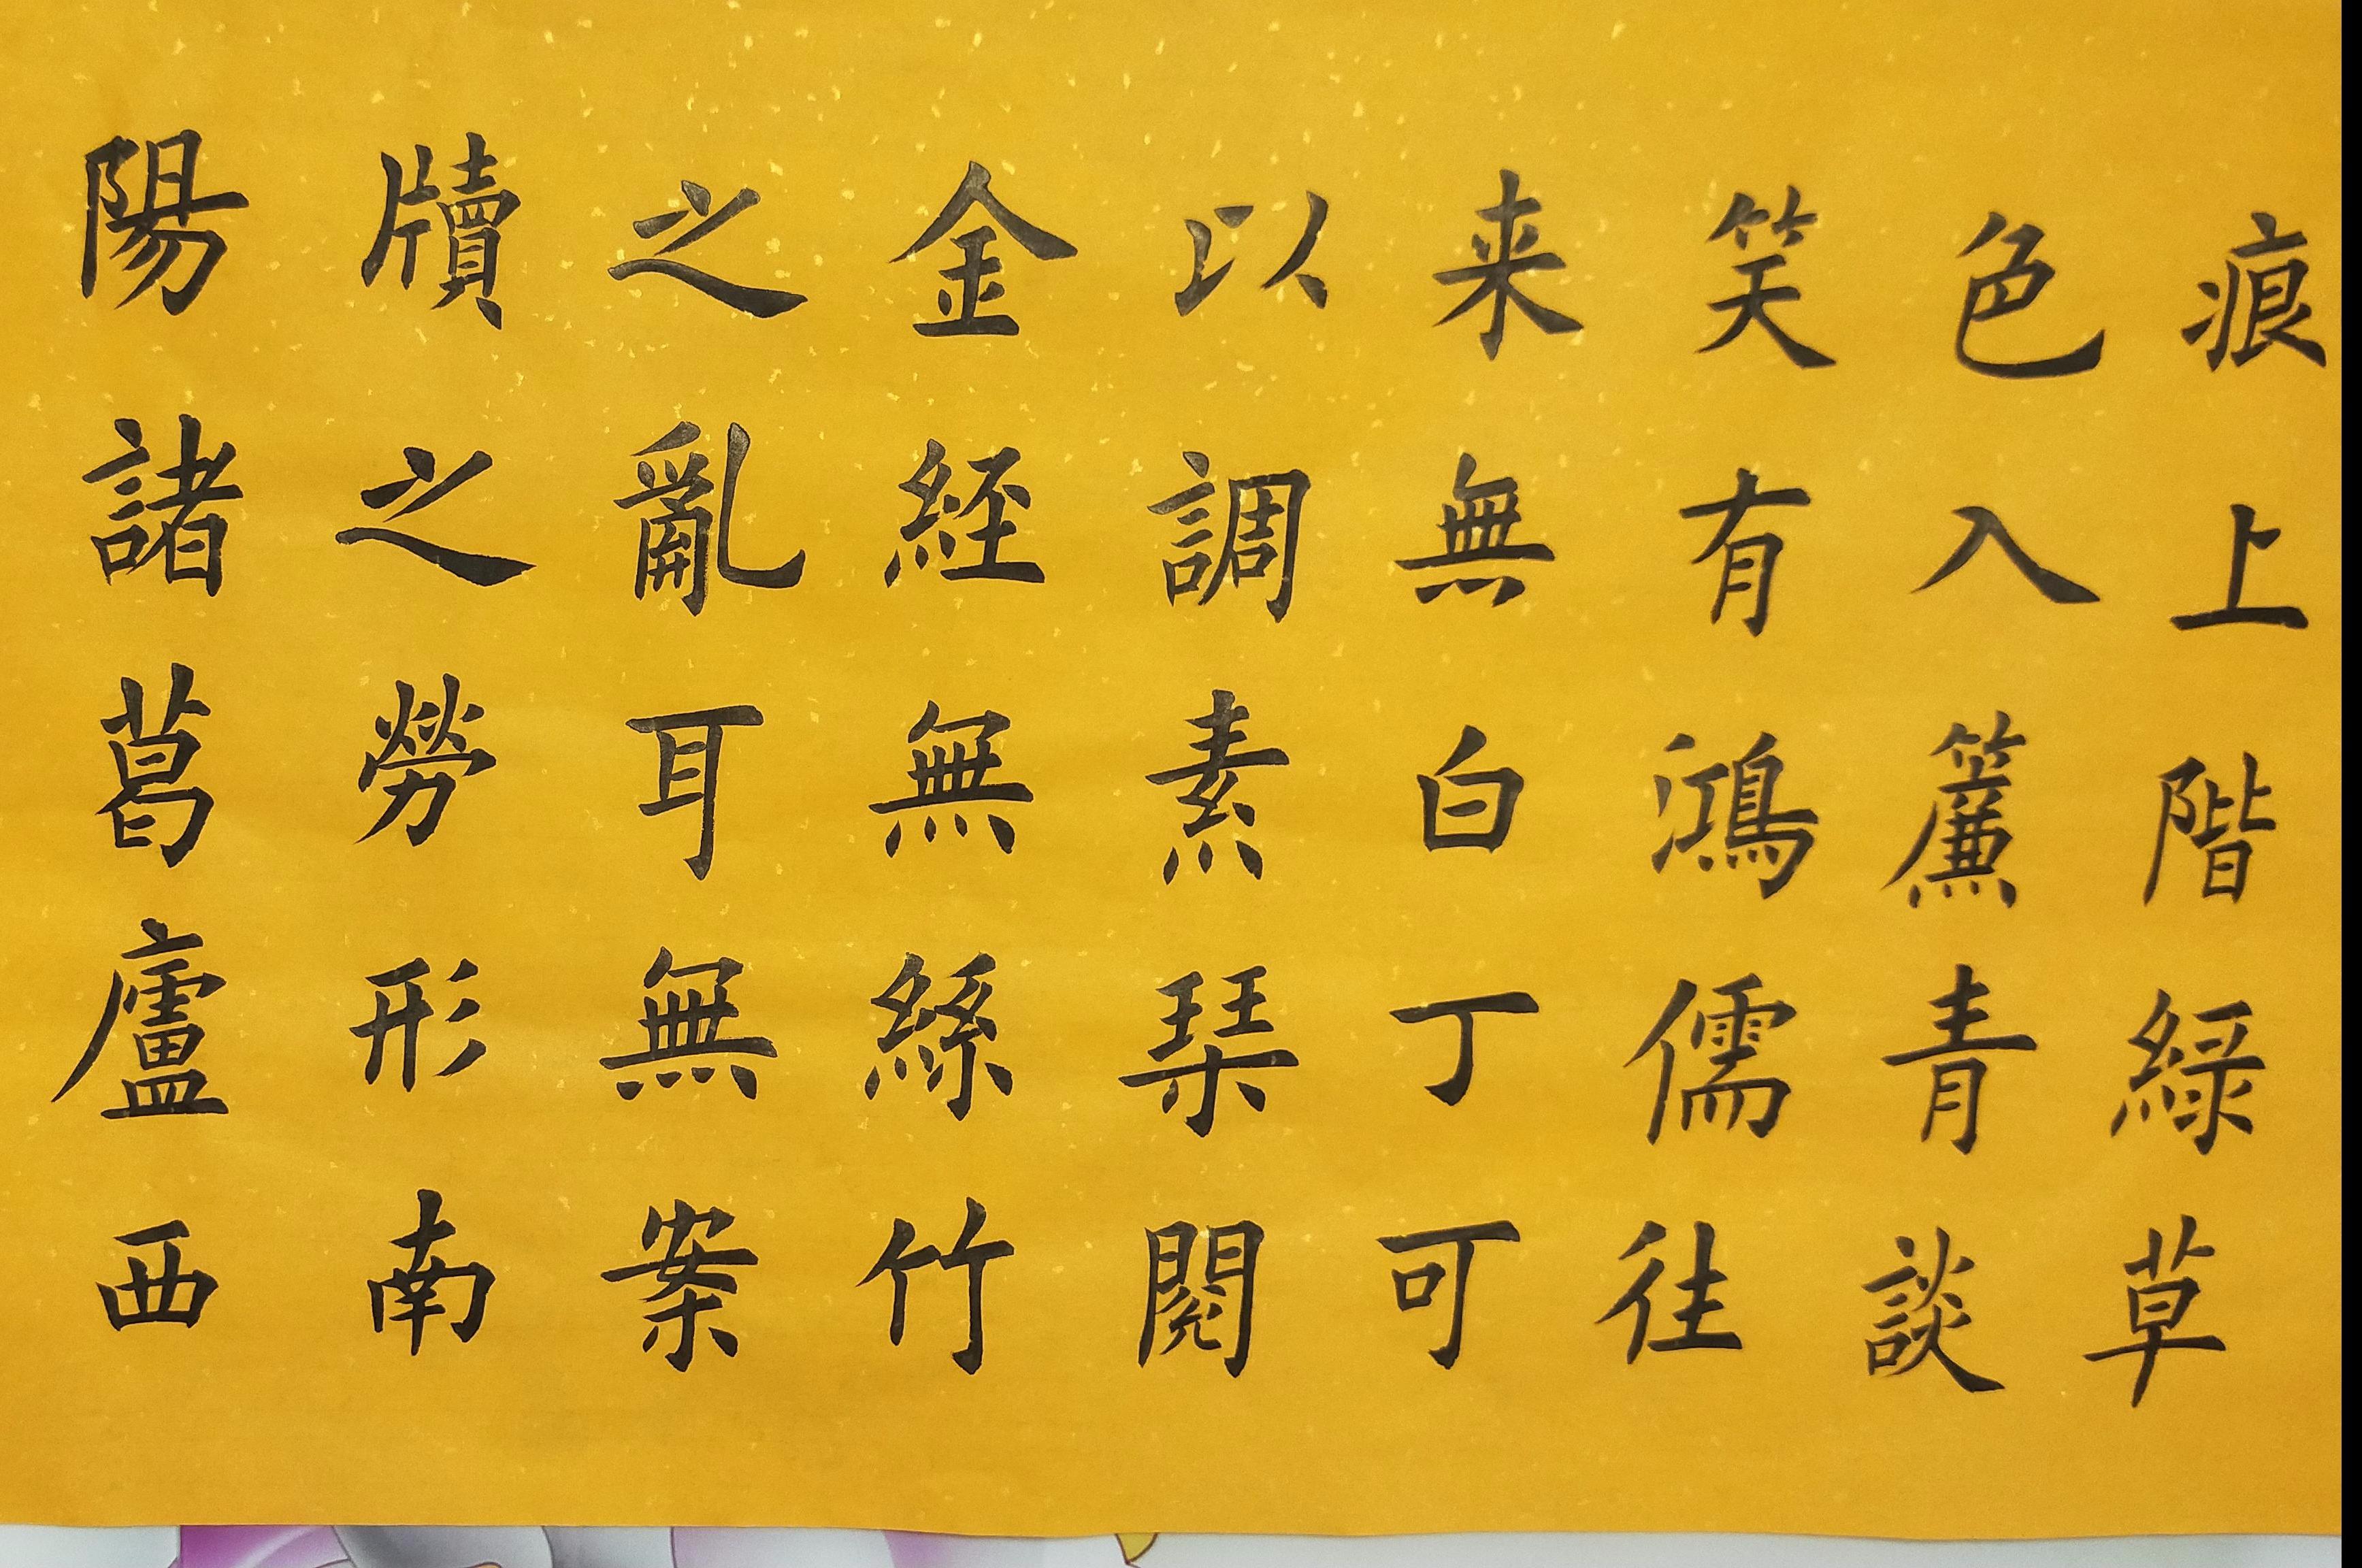 痕上階綠草
色入簾青談
笑有鴻儒往
来無白丁可
以調素琹閱
金經無絲竹
之亂耳無案
牘之勞形南
陽諸葛廬西